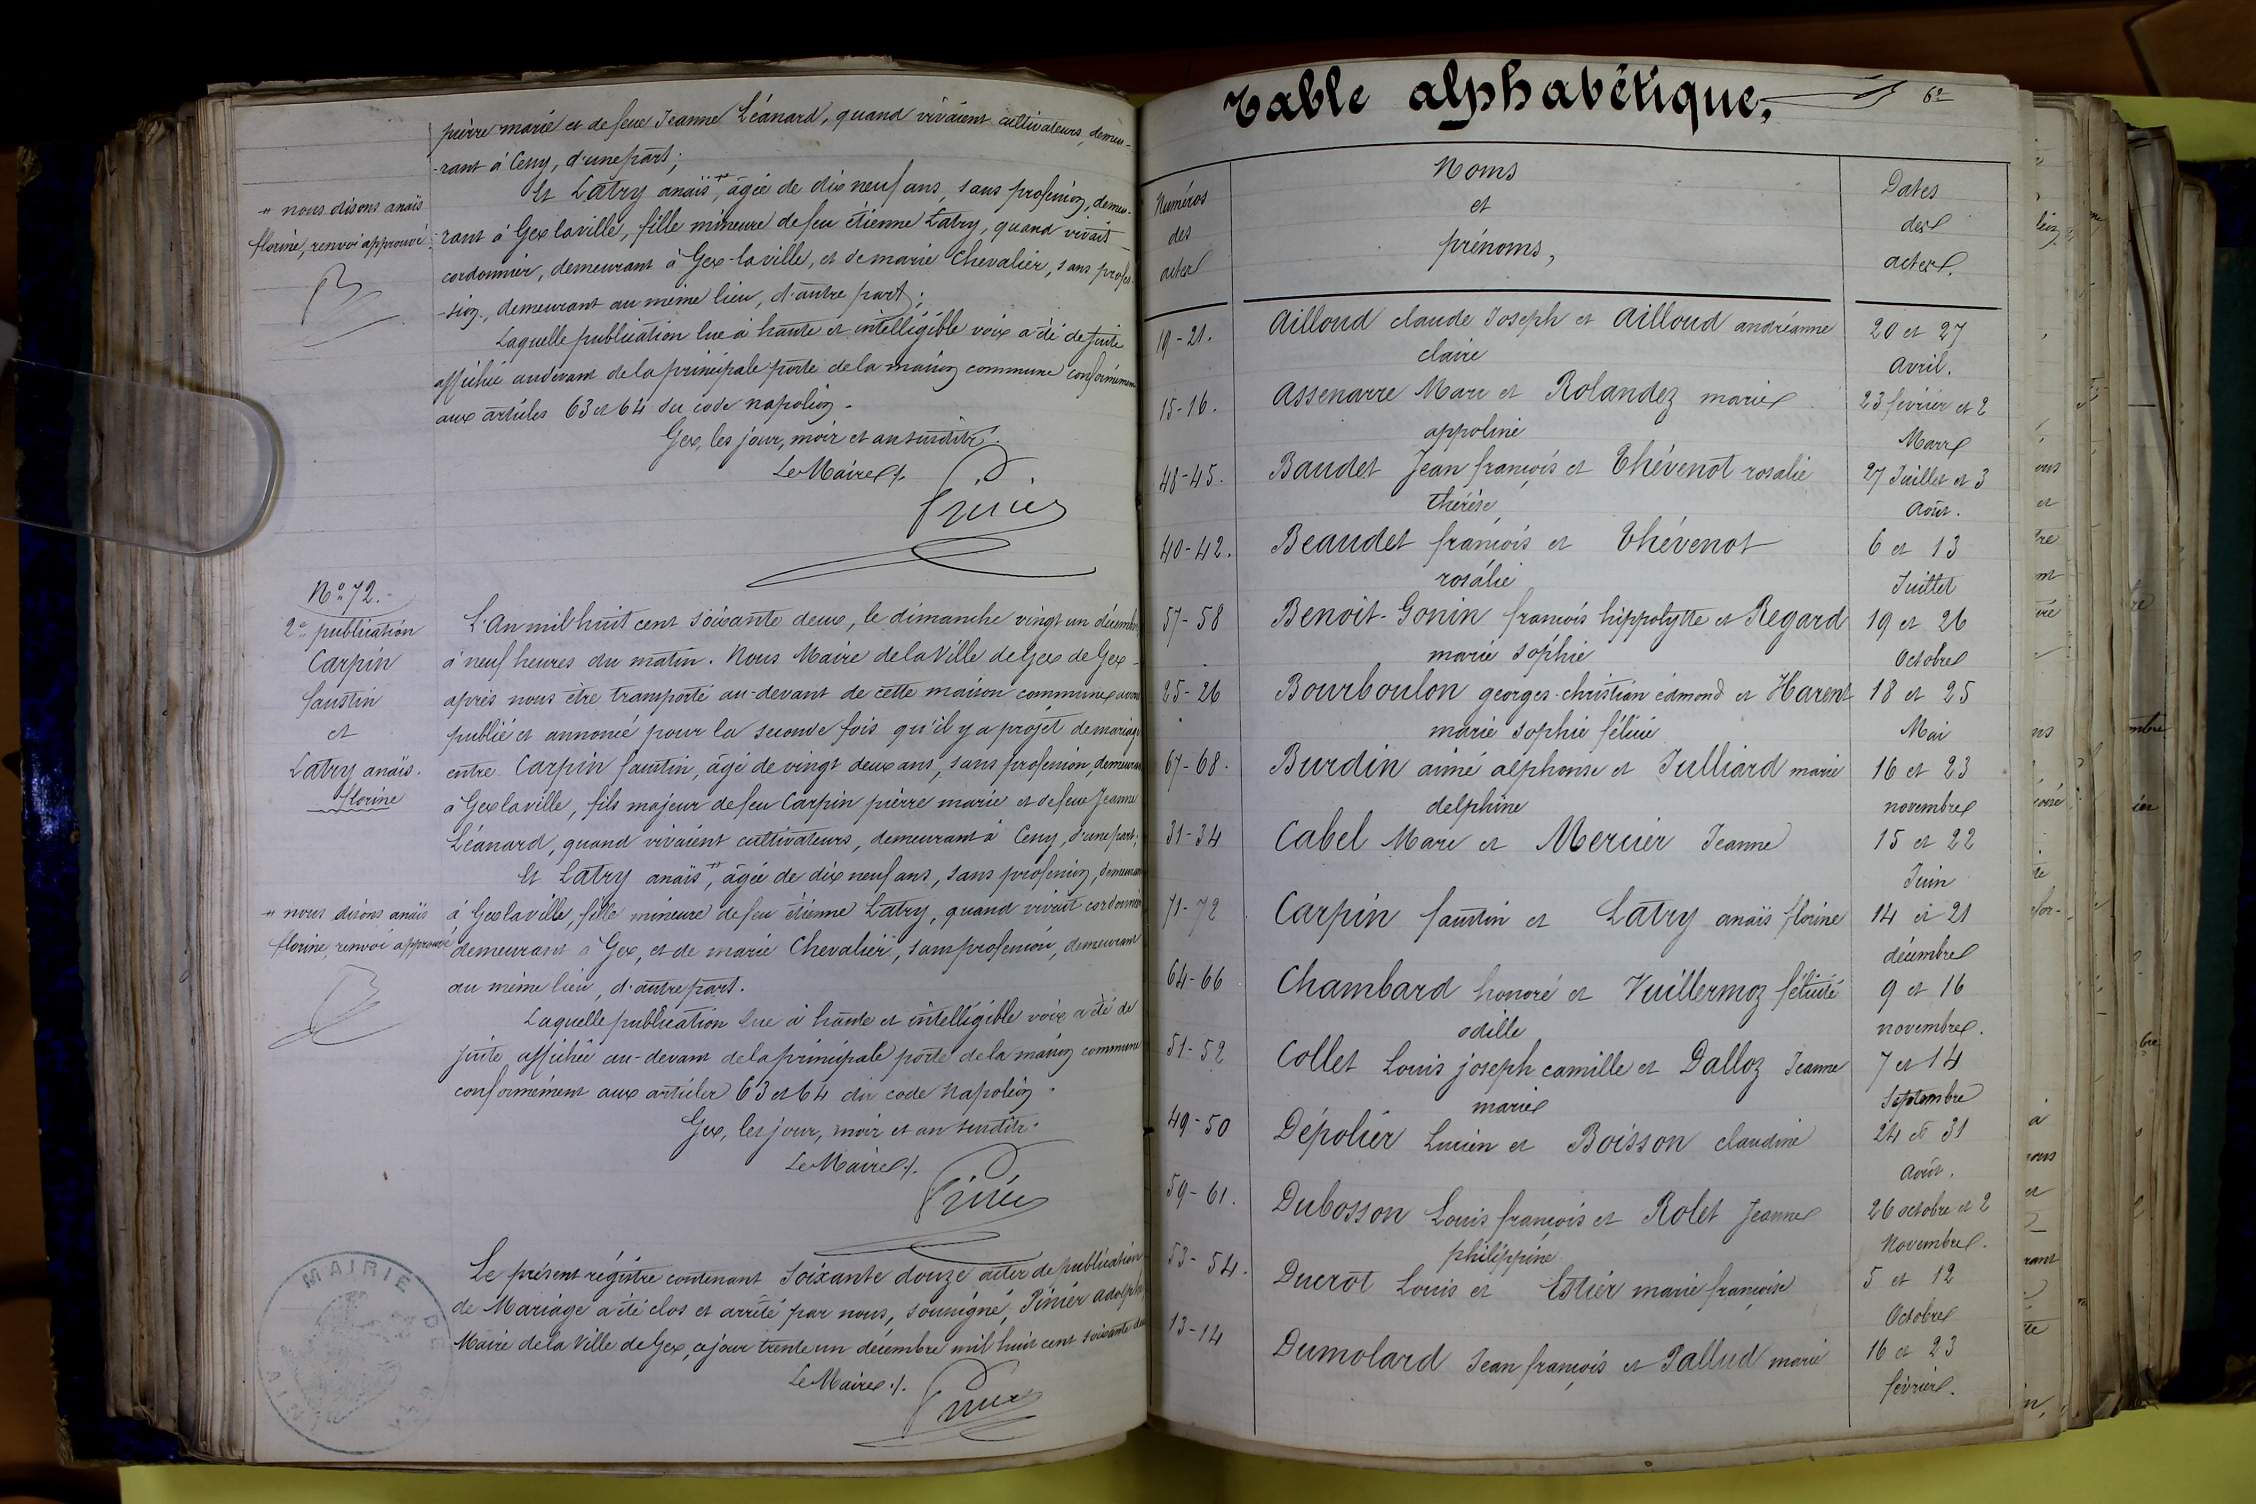 pierre marie et de feue Jeanne Léanard, quand vivaient cultivateurs, demeu-
-rant à Cessy, d'une part;
Et Latry anaïs ", âgée de dix neuf ans, sans profession, demeu-
" nous disons anaïs
florine, renvoi approuvé
rant à Gex la ville, fille mineure de feu étienne Latry, quand vivait
cordonnier, demeurant à Gex-la ville, et de marie Chevalier, sans profes-
-sion, demeurant au même lieu, d'autre part;
Laquelle publication lue à haute et intelligible voix a été de suite
affichée au devant de la principale porte de la maison commune conformément
aux articles 63 et 64 du code napoléon.
Gex, les jour, mois et an susdits.
Le Maire ./.
Pinier
N.º 72.
2e publication
Carpin
faustin
et
Latry anaïs.
florine
L'An mil huit cent soixante deux, le dimanche vingt un décembre
à neuf heures du matin. Nous Maire de la Ville de Gex de Gex
après nous être transporté au-devant de cette maison commune avons
publié et annoncé pour la seconde fois qu'il y a projet de mariage
entre Carpin faustin, âgé de vingt deux ans, sans profession, demeurant
à Gex la ville, fils majeur de feu Carpin pierre marie et de feue Jeanne
Léanard, quand vivaient cultivateurs, demeurant à Cessy, d'une part;
Et Latry anaïs ", âgée de dix neuf ans, sans profession, demeurant
" nous disons anaïs
florine, renvoi approuvé
à Gex la ville, fille mineure de feu étienne Latry, quand vivait cordonnier
demeurant à Gex, et de marie Chevalier, sans profession, demeurant
au même lieu, d'autre part.
Laquelle publication lue à haute et intelligible voix a été de
suite affichée au-devant de la principale porte de la maison commune
conformément aux articles 63 et 64 du code Napoléon.
Gex, les jour, mois et an susdits.
Le Maire ./.
Pinier
Le présent régistre contenant soixante douze actes de publication
de Mariage a été clos et arrêté par nous, soussigné, Pinier adolphe
Maire de la Ville de Gex, ce jour trente un décembre mil huit cent soixante deux
Le Maire ./.
Pinier
MAIRIE DE GEX
AIN
Table alphabétique.
62
Numéros
des
actes
Noms
et
prénoms,
Dates
des
actes.
19-21. Ailloud claude Joseph et Ailloud andréanne 20 et 27
claire Avril.
15-16. Assenarre Marc et Rolandez marie 23 février et 2
appoline Mars
48-45. Baudet Jean françois et Thévenot rosalie 27 Juillet et 3
thérèse Août.
40-42. Beaudet françois et Thévenot 6 et 13
rosalie Juillet
57-58 Benoit-Gonin françois hippolytte et Regard 19 et 26
marie sophie Octobre
25-26 Bourboulon georges-christian édmond et Harent 18 et 25
marie sophie félicie Mai
67-68. Burdin aimé alphonse et Julliard marie 16 et 23
delphine novembre
31-34 Cabel Marc et Mercier Jeanne 15 et 22
Juin
71-72 Carpin faustin et Latry anaïs florine 14 et 21
décembre
64-66 Chambard honoré et Vuillermoz félicité 9 et 16
odille novembre.
51-52 Collet Louis joseph camille et Dalloz Jeanne 7 et 14
marie Septembre
49-50 Dépolier Lucien et Boisson claudine 24 et 31
Août.
59-61. Dubosson Louis françois et Rolet Jeanne 26 octobre et 2
philippine Novembre.
53-54. Ducrot Louis et Estier marie françoise 5 et 12
Octobre
13-14 Dumolard Jean françois et Pallud marie 16 et 23
février.